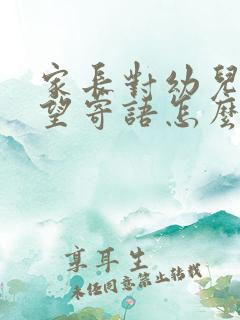 家長對幼兒
望寄語怎麼
享耳生
未经同意禁止转载